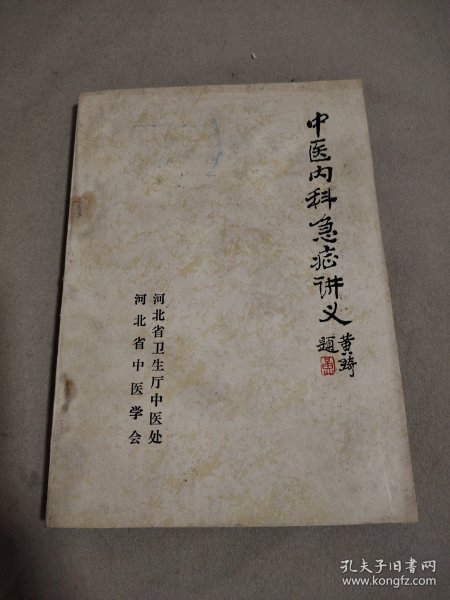 中医内科急症讲义
黄琦
题
河北省卫生厅中医处
河北省中医学会
孔夫子旧书网
www.kongfz.com